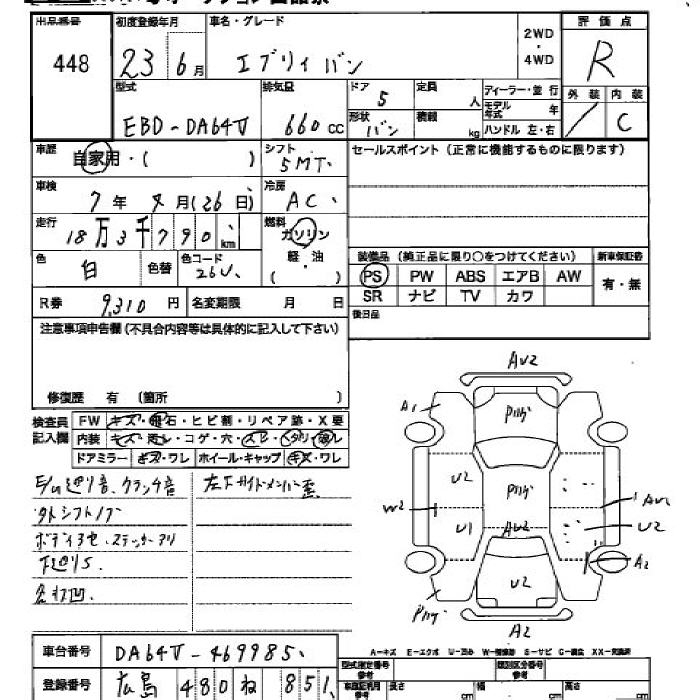 出品番号 初度登録年月 車名・グレード 2WD・4WD 評価点
448 23 6月 エブリィ バン R
型式 排気量 ドア 定員 ディーラー・並行 外装 内装
EBD-DA64V 660cc 5 人 モデル年式 年
形状 バン 積載 kg ハンドル 左・右 / C
車歴 自家用・( ) シフト 5MT セールスポイント(正常に機能するものに限ります)
車検 7年 月(26日) 冷房 AC
走行 18万3千790km 燃料 ガソリン 軽・油 ( )
色 白 色替 色コード 26U
装備品(純正品に限り○をつけてください) 新車保証書
PS PW ABS エアB AW 有・無
SR ナビ TV カワ
R券 9,310円 名変期限 月 日 後日品
注意事項申告欄(不具合内容等は具体的に記入して下さい)
修復歴 有 (箇所 )
検査員記入欄 FW キズ・飛石・ヒビ割・リペア跡・X要
内装 キズ・汚レ・コゲ・穴・スレ・ヘタリ・濡レ
ドアミラー キズ・ワレ ホイール・キャップ キズ・ワレ
E/G廻り音、クラッチ音 左下サイドメンバー歪
タトシフトノブ
ボディ色セ・ステッカーアリ
下廻りS.
凹.
AU2
A1 Pハゲ
U2 Pハゲ
W2 AU2
U1 AU2 U2
U2 A2
Pハゲ
A2
A-キズ E-エクボ U-凹み W-補修跡 S-サビ C-腐食 XX-交換済
車台番号 DA64V-469985
型式指定番号 参考 類別区分番号 参考
登録番号 広島 480 ね 851
長さ cm 幅 cm 高さ cm